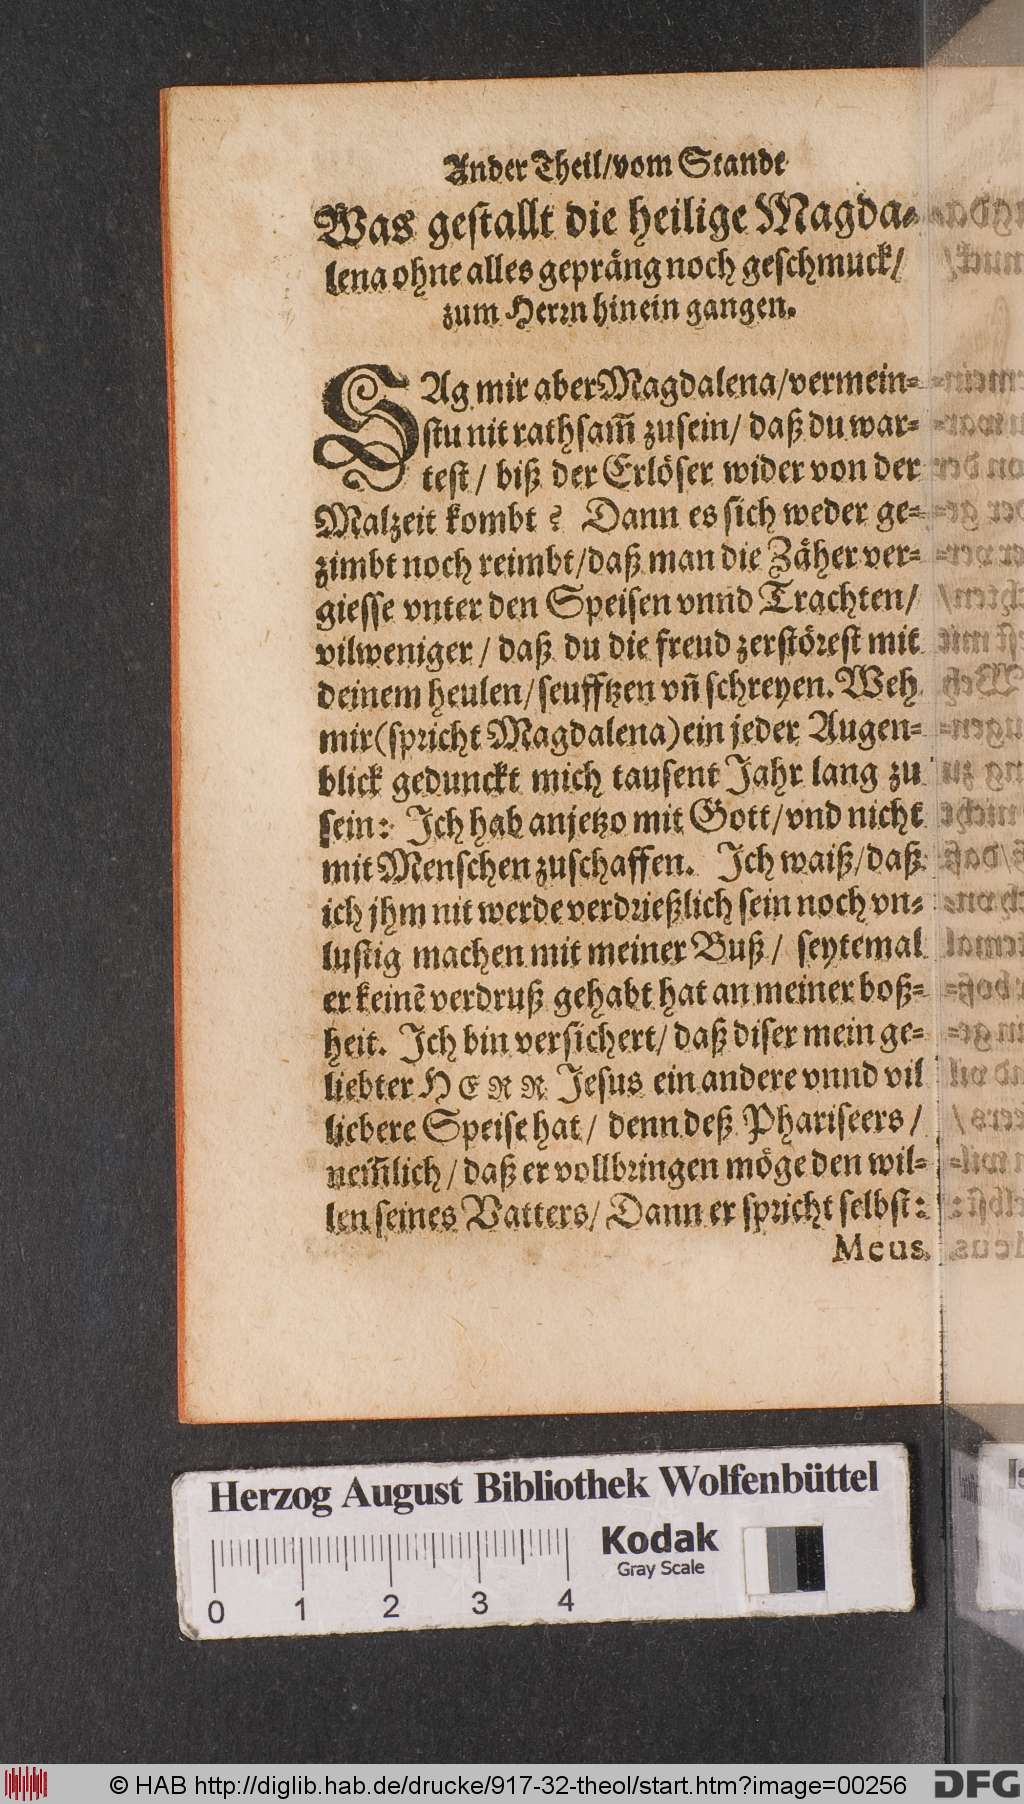 Ander Theil/vom Stande
Was gestallt die heilige Magda-
lena ohne alles gepräng noch geschmuck/
zum Herrn hinein gangen.
SAg mir aber Magdalena/vermein-
stu nit rathsam̃ zusein/ daß du war-
test/ biß der Erlöser wider von der
Malzeit kombt? Dann es sich weder ge-
zimbt noch reimbt/daß man die Zäher ver-
giesse vnter den Speisen vnnd Trachten/
vilweniger/ daß du die freud zerstörest mit
deinem heulen/seufftzen vñ schreyen. Weh
mir (spricht Magdalena) ein jeder Augen-
blick gedunckt mich tausent Jahr lang zu
sein: Ich hab anjetzo mit Gott/vnd nicht
mit Menschen zuschaffen. Ich waiß/daß
ich jhm nit werde verdrießlich sein noch vn-
lustig machen mit meiner Buß/ seytemal
er keinẽ verdruß gehabt hat an meiner boß-
heit. Ich bin versichert/ daß diser mein ge-
liebter HERR Jesus ein andere vnnd vil
liebere Speise hat/ denn deß Phariseers/
nem̃lich/ daß er vollbringen möge den wil-
len seines Vatters/ Dann er spricht selbst:
Meus
Herzog August Bibliothek Wolfenbüttel
Kodak
Gray Scale
0 1 2 3 4
© HAB http://diglib.hab.de/drucke/917-32-theol/start.htm?image=00256
DFG